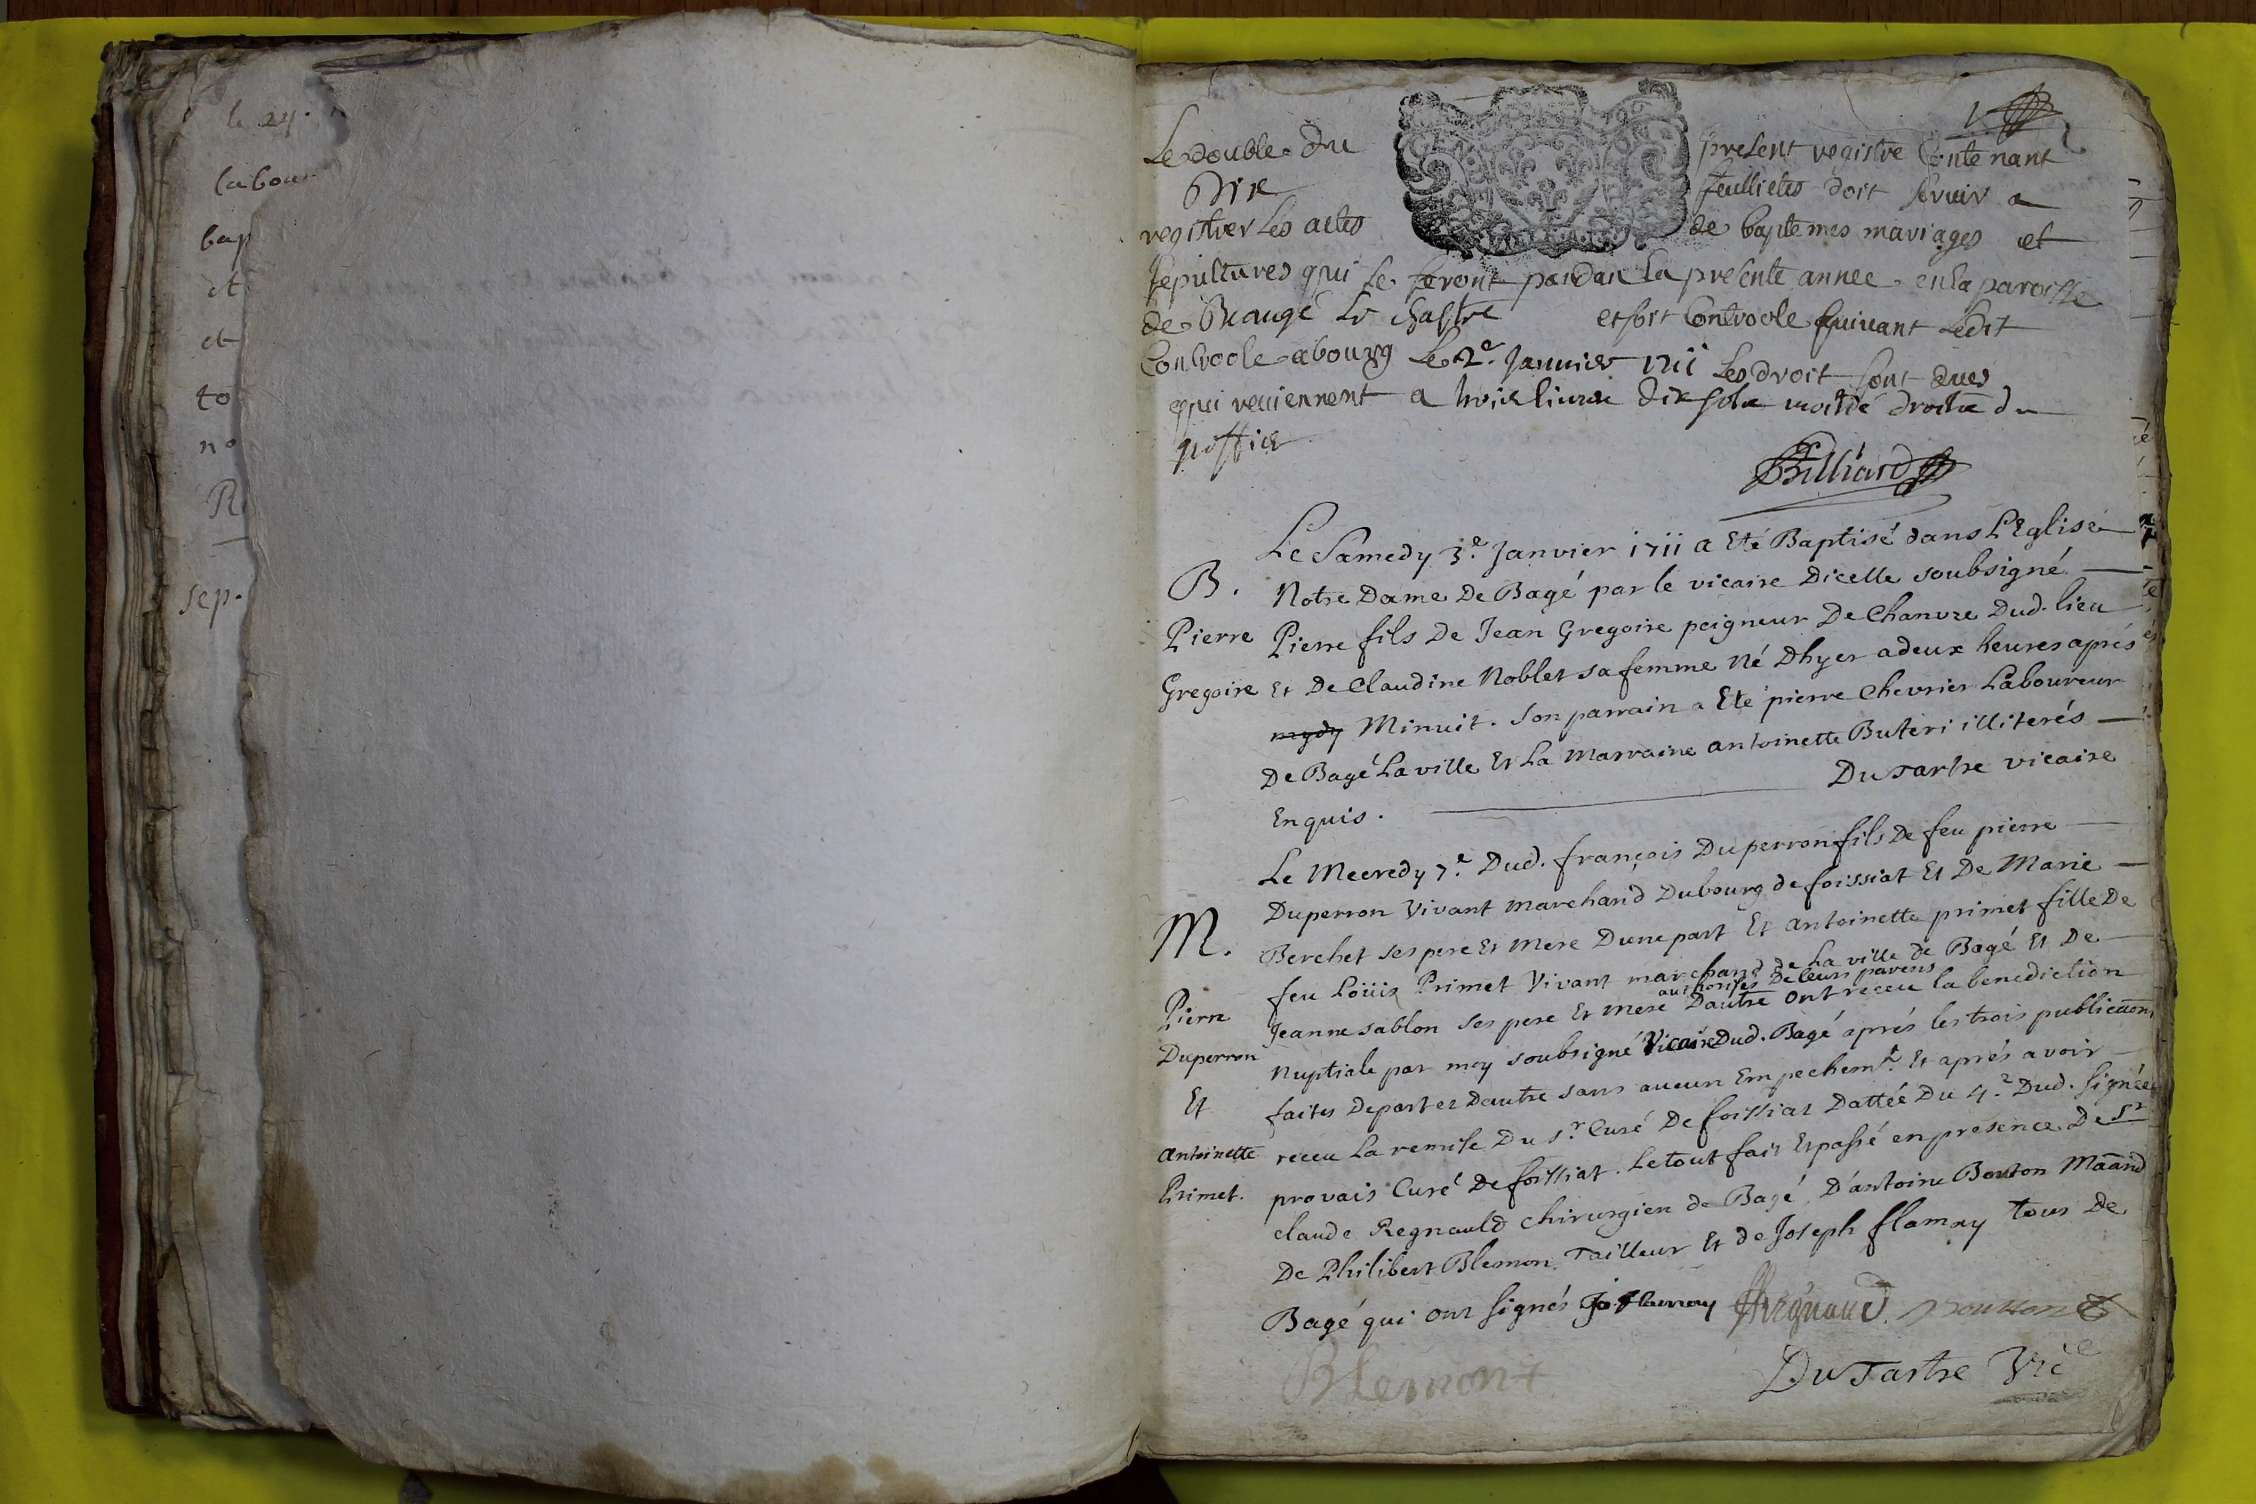 le 24.
labour
bap
et
et
to
no
R
sep.
1
Le double du present registre Contenant
Dix feullietes doit servir a
registrer Les actes de baptemes mariages et
sepultures qui se feront pandan la presente annee en la paroisse
de Beaugé Le chastre et soit Controole suivant Ledit
Controole a bourg Le 2e Janvier 1711 Les droit sont dues
qui reviennent a trois livre dix sols moitié droits du
greffier
Billiard
Le Samedy 3e Janvier 1711 a Eté Baptisé dans L'Eglise
B. Notre Dame De Bagé par le vicaire Dicelle soubsigné
Pierre Pierre fils De Jean Gregoire peigneur De Chanvre Dud. lieu
Gregoire Et De Claudine Noblet sa femme Né Dhyer a deux heures aprés
mydy Minuit. Son parrain a Eté pierre Chevrier Laboureur
De Bagé La ville Et La Marraine antoinette Buteri illiterés
Enquis. Du Tartre vicaire
Le Mecredy 7e Dud. françois Duperron fils De feu pierre
Duperron Vivant marchand Du bourg de foissiat Et De Marie
M. Berchet ses pere Et Mere Dune part Et antoinette primet fille De
feu Loüis Primet Vivant marchand de La ville De Bagé Et De
authorises De leurs parens
Pierre Jeanne sablon ses pere Et Mere Dautre ont receu la benediction
Duperron Nuptiale par moy soubsigné Vicaire Dud. Bagé aprés les trois publications
Et faites De part et Dautre sans aucun Empechemt. Et aprés avoir
antoinette receu La remise Du sr. Curé De foissiat Dattée Du 4e Dud. Signée
Primet. provais Curé De foissiat. Le tout fait Et passé en presence De Sr
claude Regnauld chirurgien de Bagé, D'antoine Bouton Maand
De Philibert Blemon Tailleur Et de Joseph flamay tous De
Bagé qui ont signés Jo flamay Regnaud Boutton
Blemont Du Tartre Vice